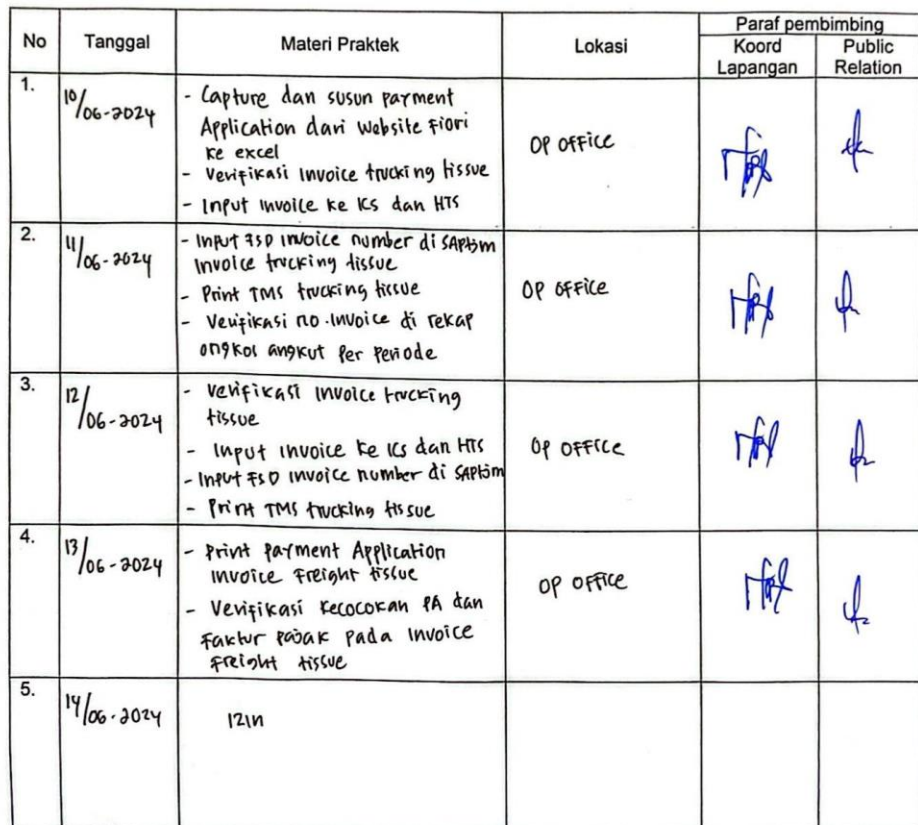 No Tanggal Materi Praktek Lokasi Paraf pembimbing
Koord Lapangan Public Relation
1. 10/06-2024 - Capture dan susun payment
Application dari website Fiori
ke excel
- Verifikasi Invoice trucking tissue
- Input invoice ke ICS dan HTS
OP OFFICE
2. 11/06-2024 - Input FSD invoice number di SAPtsm
Invoice trucking tissue
- Print TMS trucking tissue
- Verifikasi no.invoice di rekap
ongkos angkut per periode
OP OFFICE
3. 12/06-2024 - Verifikasi invoice trucking
tissue
- Input invoice ke ICS dan HTS
- Input FSD invoice number di SAPtsm
- Print TMS trucking tissue
OP OFFICE
4. 13/06-2024 - Print payment Application
invoice Freight tissue
- Verifikasi kecocokan PA dan
Faktur pajak pada invoice
Freight tissue
OP OFFICE
5. 14/06-2024 Izin